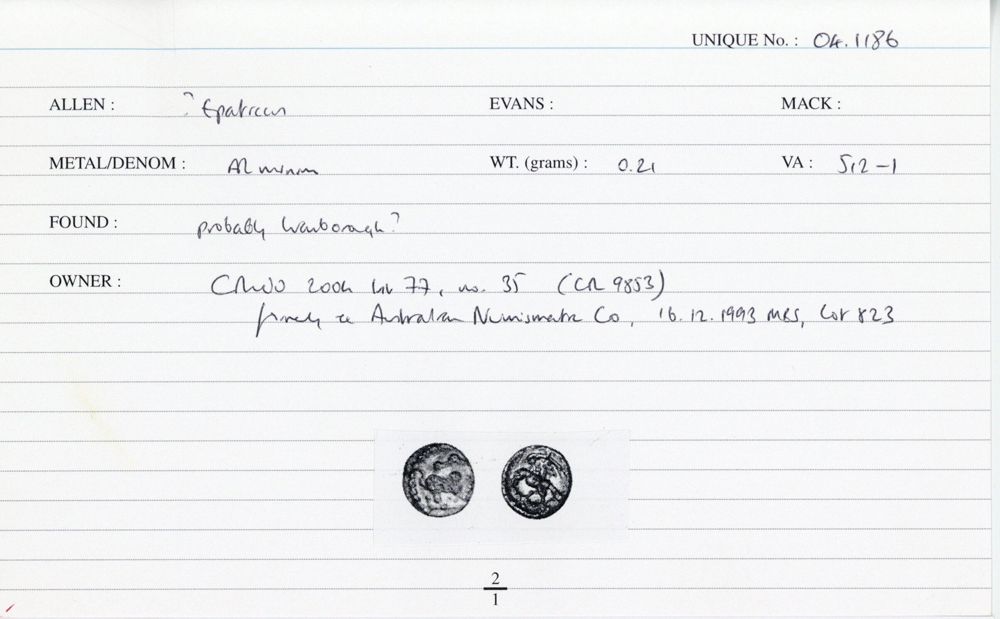 UNIQUE No. : 04.1186
ALLEN : ? Epaticcus EVANS : MACK :
METAL/DENOM : AR minim WT. (grams) : 0.21 VA : 512-1
FOUND : probably Wanborough?
OWNER : 2004 list 77, no. 35 (CR 9853)
formerly Australian Numismatic Co, 16.12.1993 MBS, Lot 823
2
1